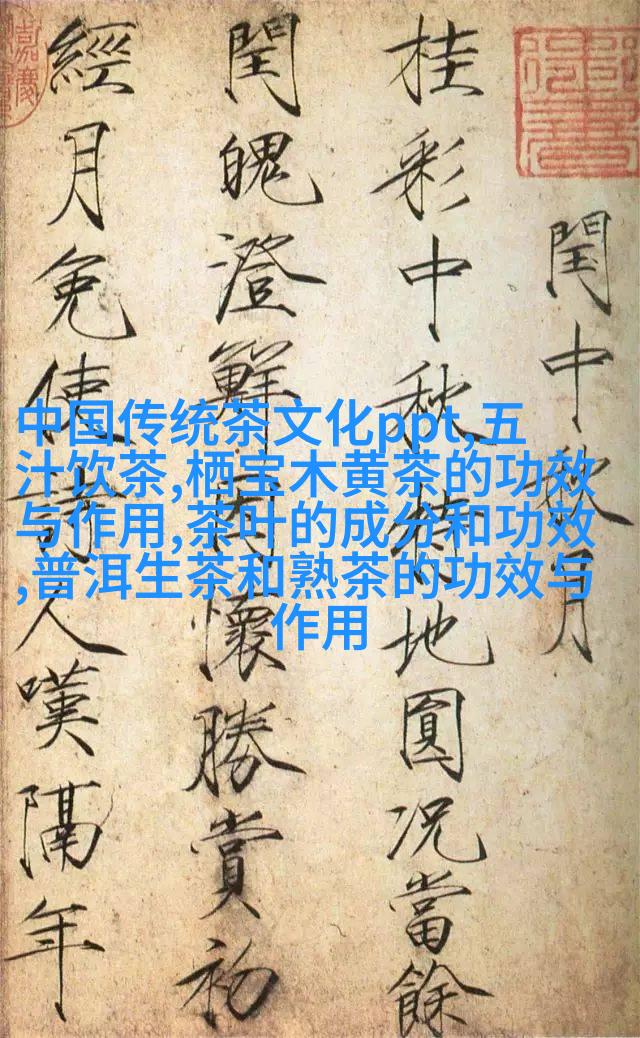 閏中秋月
桂彩中秋特地圓況當餘
閏魄澄鮮因懷勝賞初
經月免使詩人嘆隔年
中国传统茶文化ppt,五
汁饮茶,栖宝木黄茶的功效
与作用,茶叶的成分和功效
,普洱生茶和熟茶的功效与
作用